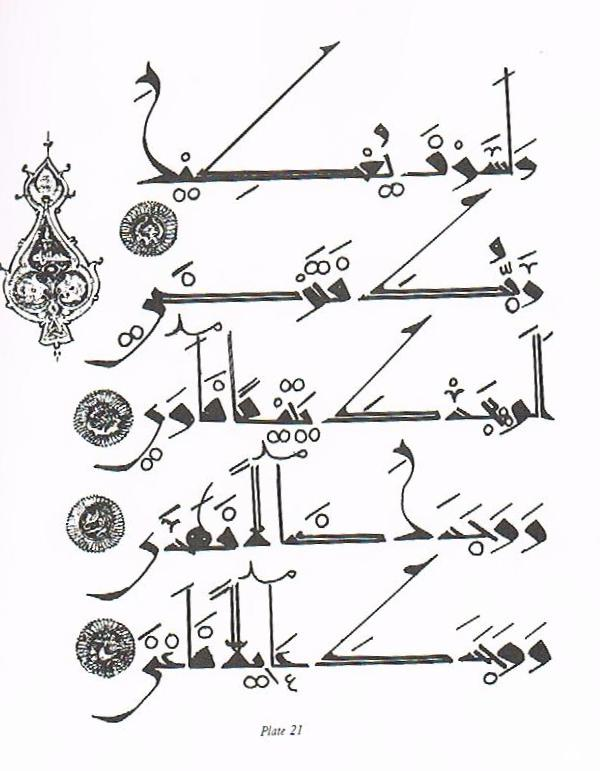 وَلَسَوْفَ يُعْطِيكَ
رَبُّكَ فَتَرْضَى
أَلَمْ يَجِدْكَ يَتِيمًا فَآوَى
وَوَجَدَكَ ضَالًّا فَهَدَى
وَوَجَدَكَ عَائِلًا فَأَغْنَى
Plate 21